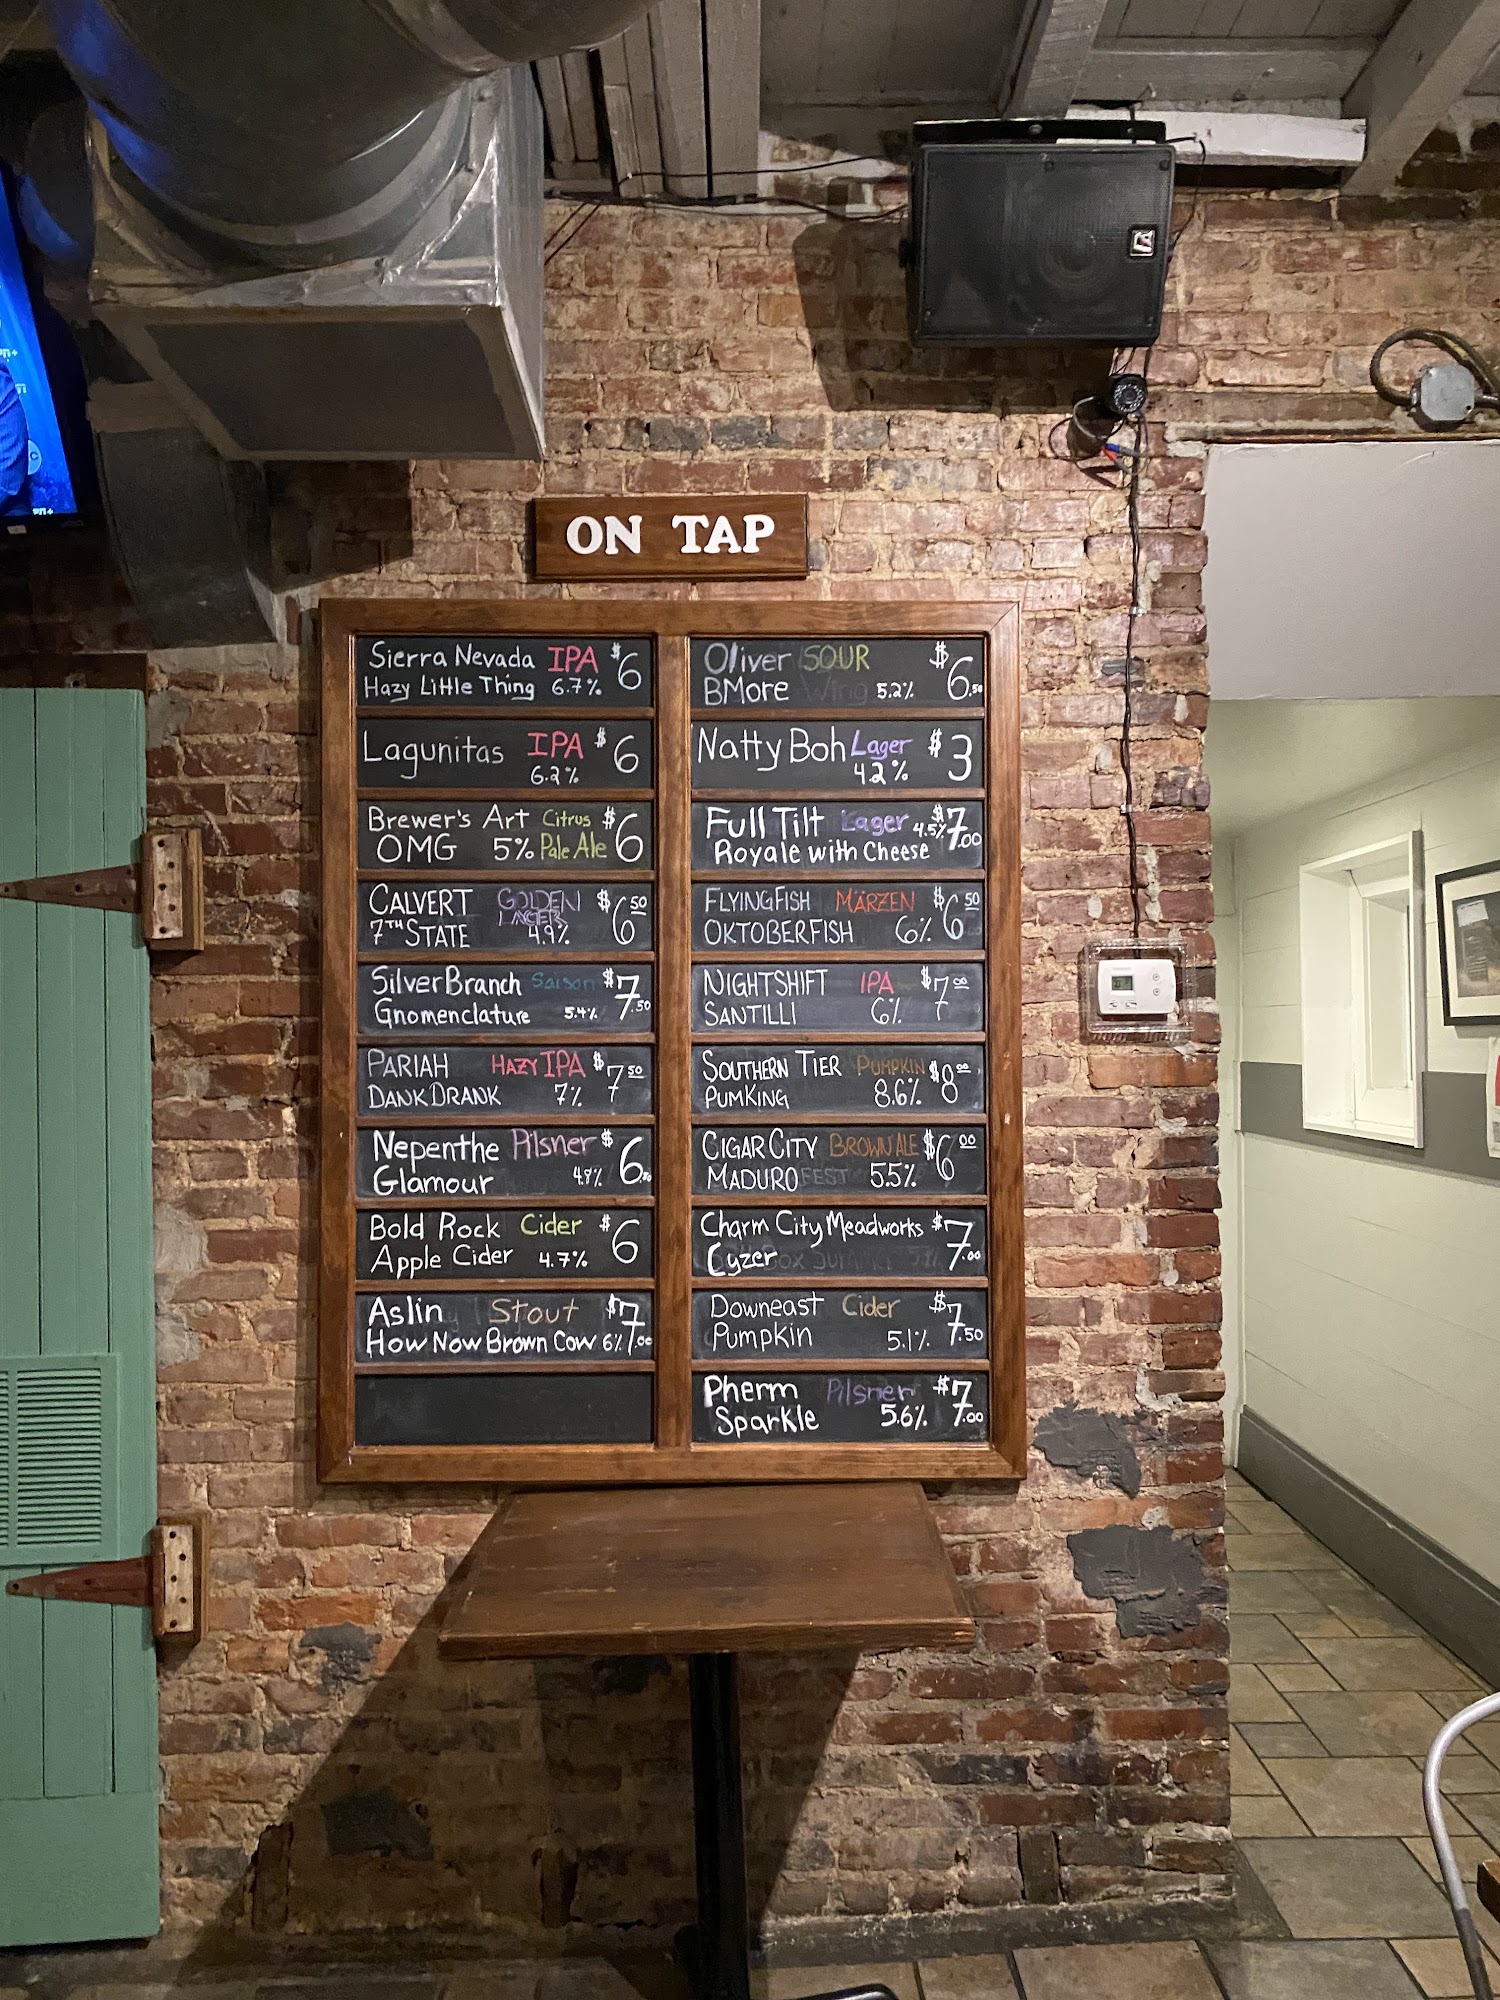 ON TAP
Sierra Nevada IPA $6
Hazy Little Thing 6.7%
Lagunitas IPA $6
6.2%
Brewer's Art Citrus $6
OMG 5% Pale Ale
CALVERT GOLDEN $6.50
7TH STATE LAGER 4.9%
Silver Branch Saison $7.50
Gnomenclature 5.4%
PARIAH HAZY IPA $7.50
DANK DRANK 7%
Nepenthe Pilsner $6.50
Glamour 4.8%
Bold Rock Cider $6
Apple Cider 4.7%
Aslin Stout $7.00
How Now Brown Cow 6%
Oliver SOUR $6.50
BMore 5.2%
Natty Boh Lager $3
4.2%
Full Tilt Lager 4.5% $7.00
Royale with Cheese
FLYING FISH MÄRZEN $6.50
OKTOBERFISH 6%
NIGHTSHIFT IPA $7.00
SANTILLI 6%
SOUTHERN TIER PUMPKIN $8.00
PUMKING 8.6%
CIGAR CITY BROWN ALE $6.00
MADURO 5.5%
Charm City Meadworks $7.00
Cyzer
Downeast Cider $7.50
Pumpkin 5.1%
Pherm Pilsner $7.00
Sparkle 5.6%